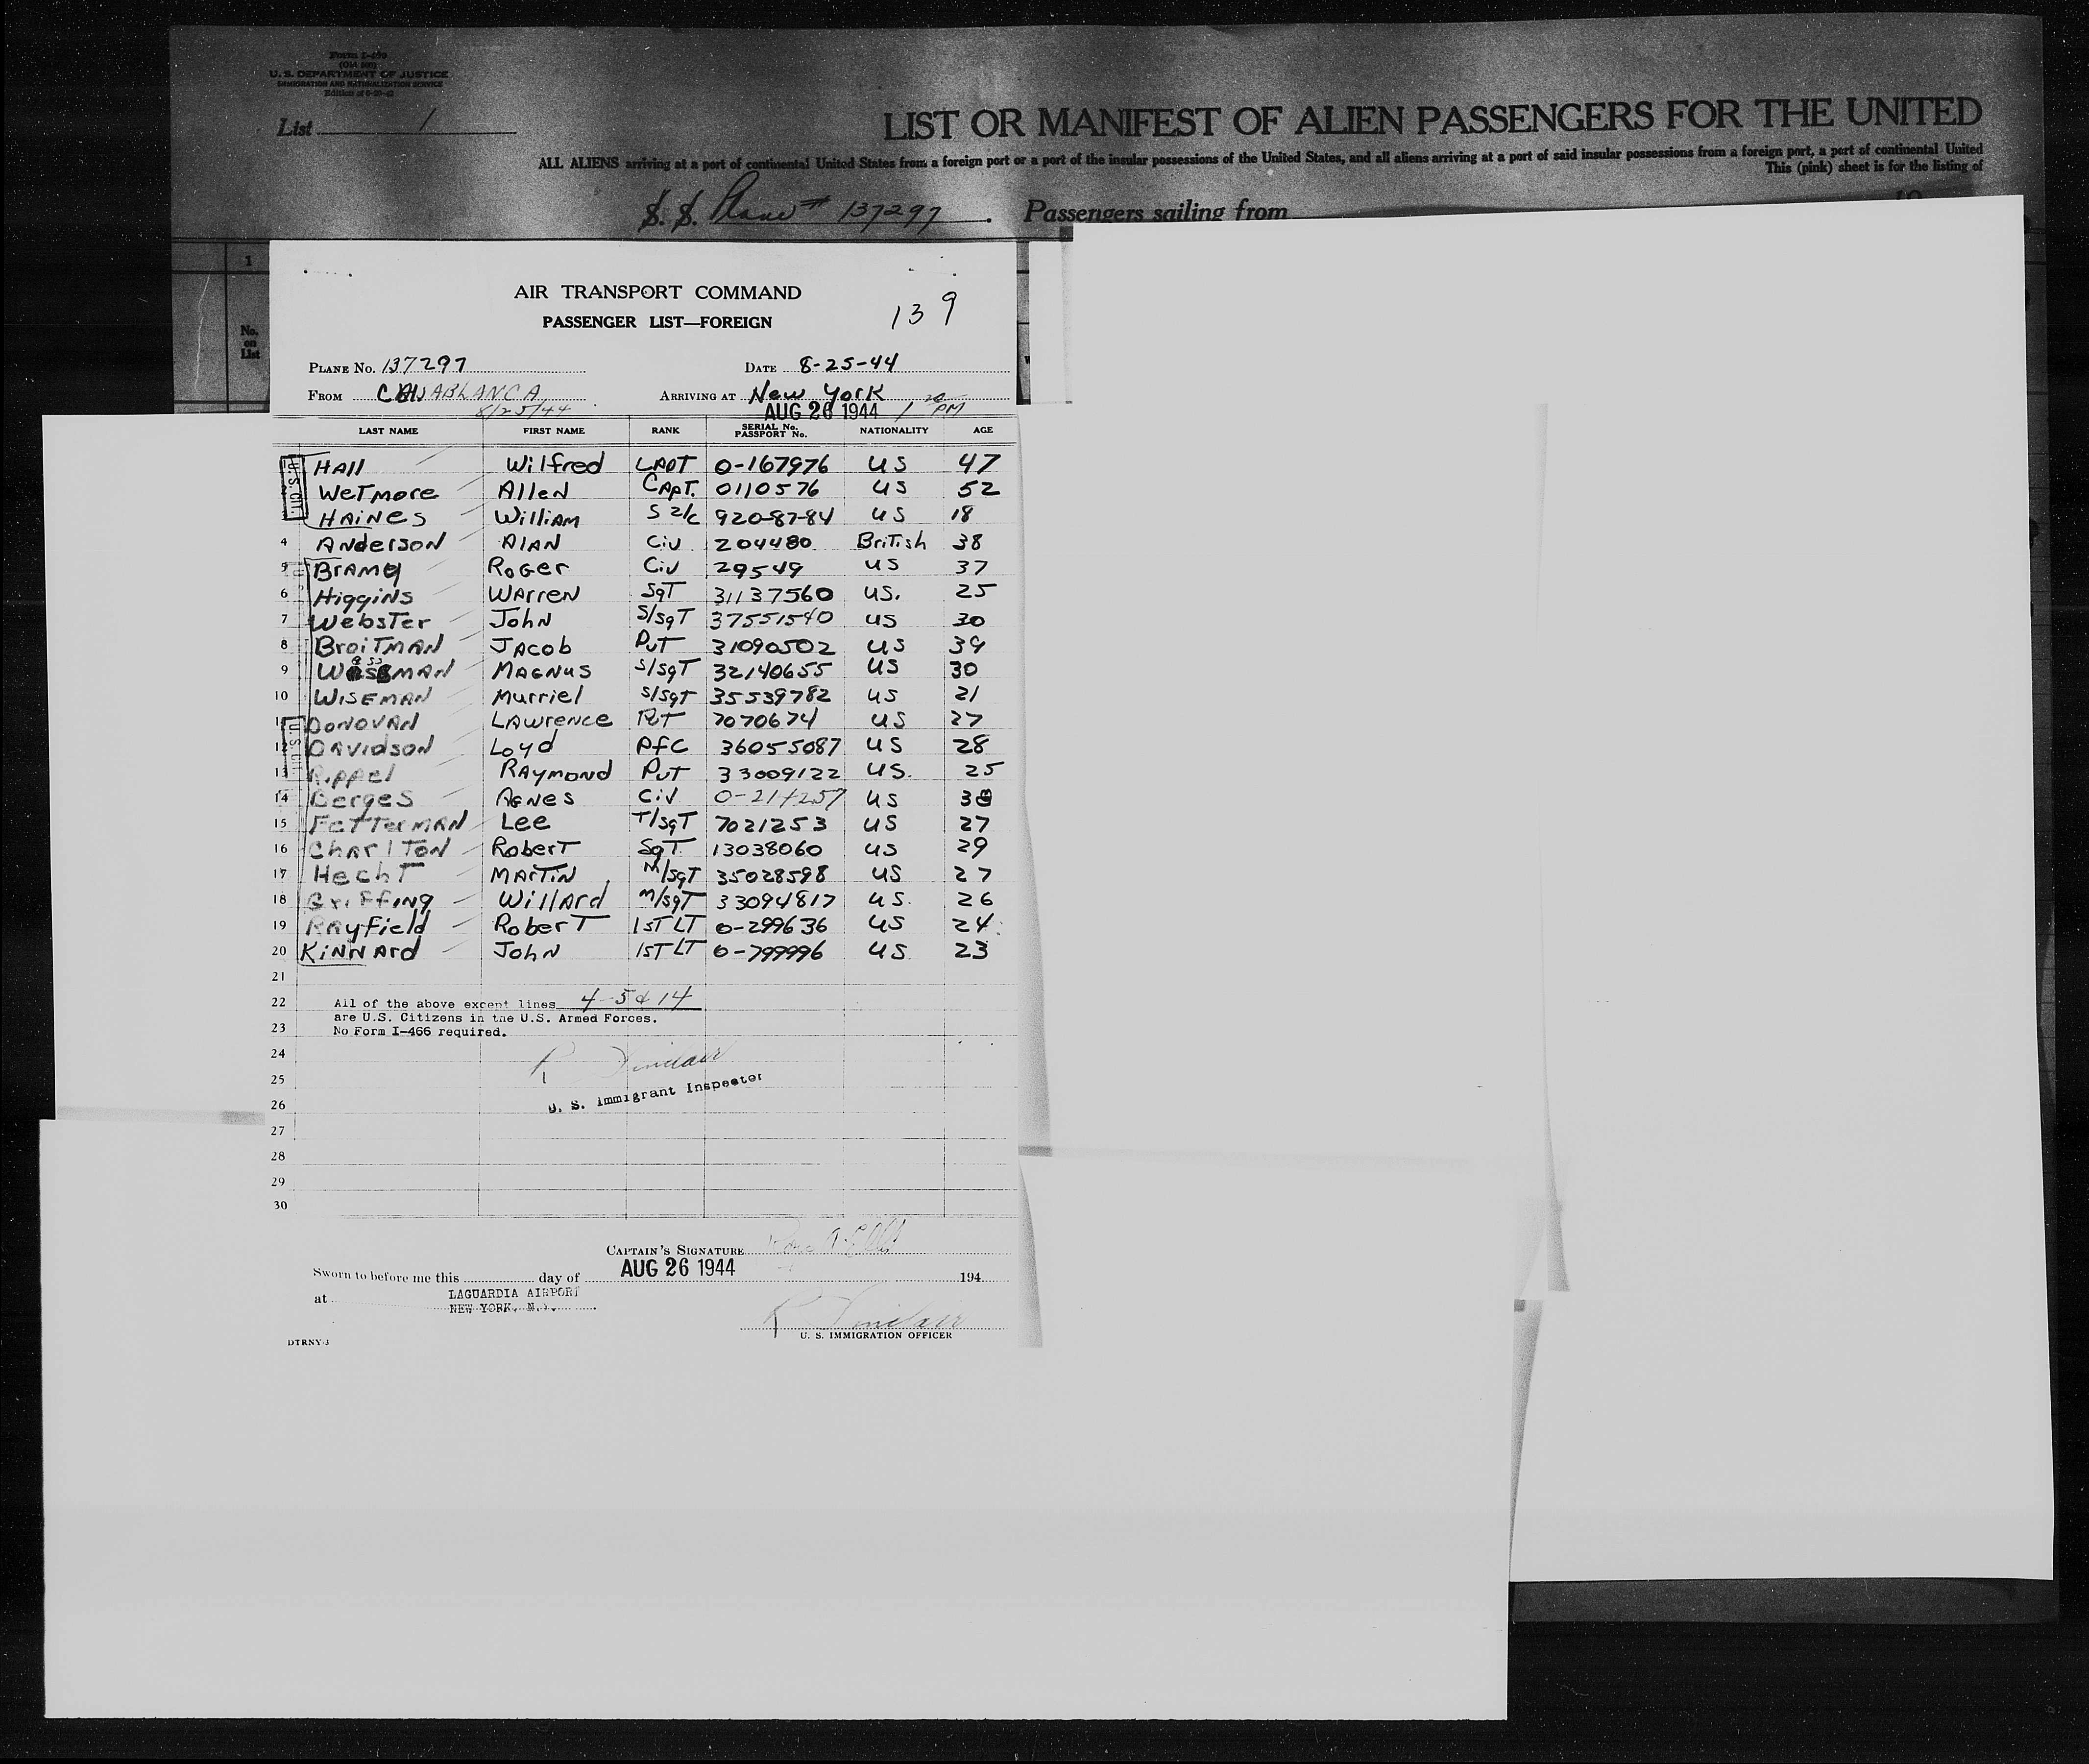 Form I-499
U. S. DEPARTMENT OF JUSTICE
IMMIGRATION AND NATURALIZATION SERVICE
List 1
LIST OR MANIFEST OF ALIEN PASSENGERS FOR THE UNITED
ALL ALIENS arriving at a port of continental United States from a foreign port or a port of the insular possessions of the United States, and all aliens arriving at a port of said insular possessions from a foreign port, a port of continental United
This (pink) sheet is for the listing of
S. S. Plane # 137297. Passengers sailing from
1
No. on List
AIR TRANSPORT COMMAND
PASSENGER LIST—FOREIGN
139
PLANE No. 137297 DATE 8-25-44
FROM CASABLANCA ARRIVING AT New York
8/25/44 AUG 26 1944 1 20 PM
LAST NAME FIRST NAME RANK SERIAL No. PASSPORT No. NATIONALITY AGE
HAll Wilfred 0-167976 US 47
WeTmore Allen CApT. 0110576 US 52
HAiNes WilliAM S 2/c 920-87-84 US 18
4 ANderson AlAN Civ 204480 BriTish 38
5 Roger Civ 29549 US 37
6 HiggiNs WArreN SgT 31137560 US. 25
7 WebsTer JohN S/SgT 37551540 US 30
8 BroiTMAN JAcob PvT 31090502 US 39
9 MAgNus S/SgT 32140655 US 30
10 WiSEMAN Murriel S/SgT 35539782 US 21
11 DONOVAN LAWreNce PvT 7070674 US 27
12 DAVidSON Loyd PFC 36055087 US 28
13 Rippel RAYMOND PvT 33009122 US. 25
14 Berges AgNes Civ 0-214257 US
15 FeTTerMAN Lee T/SgT 7021253 US 27
16 ChArlTON RoberT SgT 13038060 US 29
17 HechT MArTiN M/SgT 35028598 US 27
18 GriFFiNg WillArd M/SgT 33094817 US. 26
19 RAyfield RoberT 1ST LT 0-299636 US 24
20 KiNNArd JohN 1ST LT 0-799996 US 23
21
22 All of the above except lines 4-5 & 14
are U.S. Citizens in the U.S. Armed Forces.
23 No Form I-466 required.
24 R Sinclair
25
U. S. Immigrant Inspector
26
27
28
29
30
CAPTAIN'S SIGNATURE
Sworn to before me this day of AUG 26 1944 194
at LAGUARDIA AIRPORT
NEW YORK, N.Y.
R Sinclair
U. S. IMMIGRATION OFFICER
DTRNY-3